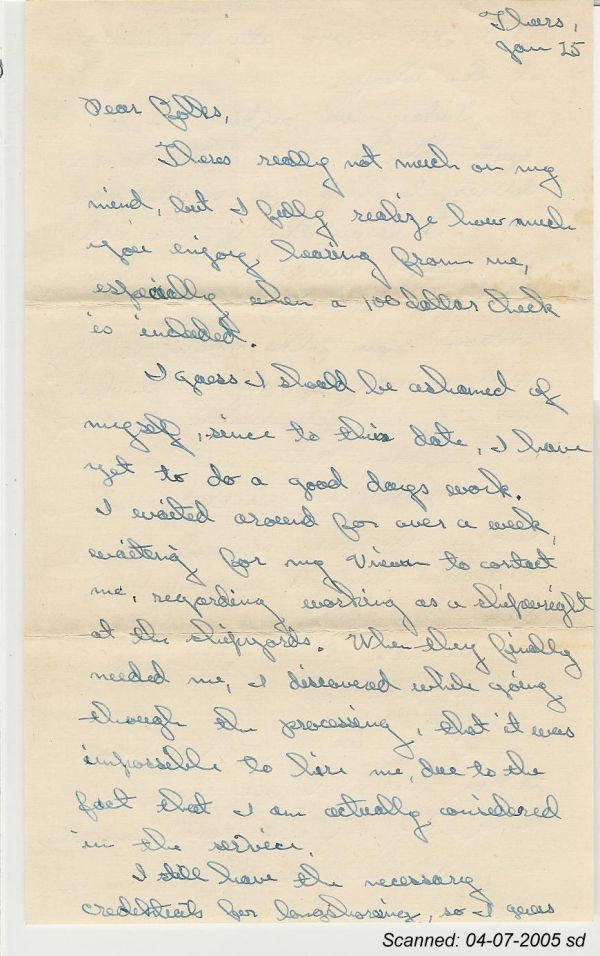 Thurs,
Jan 25
Dear Folks,
Theres really not much on my
mind, but I fully realize how much
you enjoy hearing from me,
especially when a 100 dollar check
is included.
I guess I should be ashamed of
myself, since to this date, I have
yet to do a good days work.
I waited around for over a week,
waiting for my Union to contact
me, regarding working as a shipwright
at the shipyards. When they finally
needed me, I discovered while going
through the processing, that it was
impossible to hire me, due to the
fact that I am actually considered
in the service.
I still have the necessary
credentials for longshoring, so I guess
Scanned: 04-07-2005 sd